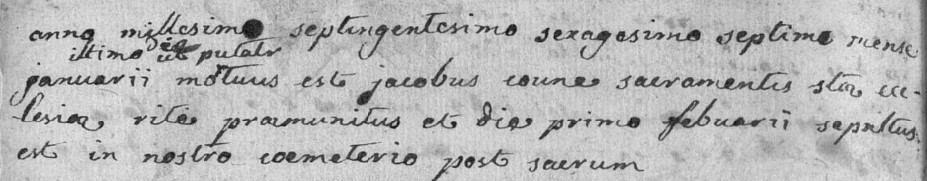 anno millesimo septingentesimo sexagesimo septimo mense
ultimo die ut putatr
januarii mortuus est jacobus coune sacramentis stæ ecc-
lesiæ rite præmunitus et die primo febuarii sepultus
est in nostro coemeterio post sacrum